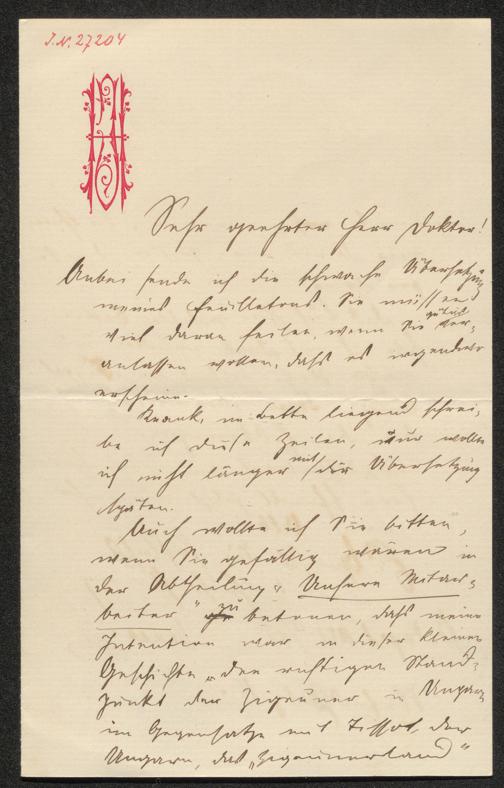 J.N. 27204
Sehr geehrter Herr Doktor!
Anbei sende ich die schwache Übersetzung
meines Feuilletons. Sie müssen
viel daran feilen, wenn Sie gütigst ver-
anlassen wollen, daß es irgendwo
erscheine.
Krank, im Bette liegend schrei-
be ich diese Zeilen, nur wollte
ich nicht länger mit der Übersetzung
späten.
Auch wollte ich Sie bitten,
wenn Sie gefällig wären in
der Abtheilung „Unsere Mitar-
beiter" zu betonen, daß meine
Intention war in dieser kleinen
Geschichte „den richtigen Stand-
punkt der Zigeuner in Ungarn
im Gegensatze mit Tissot, der
Ungarn, das „Zigeunerland"